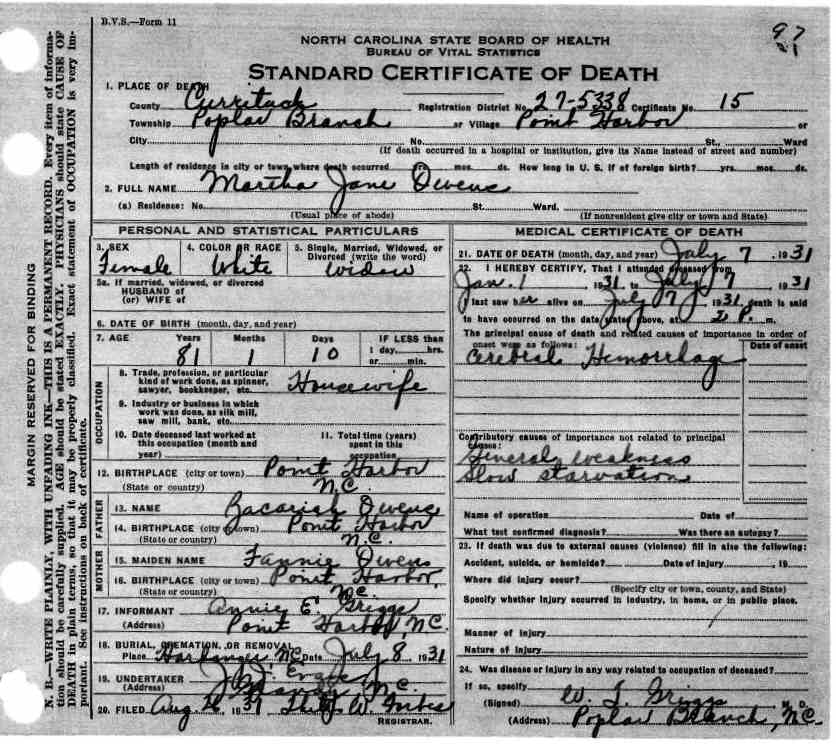 B.V.S.—Form 11
97
1
NORTH CAROLINA STATE BOARD OF HEALTH
BUREAU OF VITAL STATISTICS
STANDARD CERTIFICATE OF DEATH
1. PLACE OF DEATH
County Currituck Registration District No. 27-5338 Certificate No. 15
Township Poplar Branch or Village Point Harbor or
City No. St., Ward
(If death occurred in a hospital or institution, give its Name instead of street and number)
Length of residence in city or town where death occurred yrs. mos. ds. How long in U. S. if of foreign birth? yrs. mos. ds.
2. FULL NAME Martha Jane Owens
(a) Residence: No. St. Ward.
(Usual place of abode) (If nonresident give city or town and State)
PERSONAL AND STATISTICAL PARTICULARS
3. SEX 4. COLOR OR RACE 5. Single, Married, Widowed, or
Divorced (write the word)
Female White Widow
5a. If married, widowed, or divorced
HUSBAND of
(or) WIFE of
6. DATE OF BIRTH (month, day, and year)
7. AGE Years Months Days IF LESS than
1 day, hrs.
81 1 10 or min.
OCCUPATION
8. Trade, profession, or particular
kind of work done, as spinner,
sawyer, bookkeeper, etc. Housewife
9. Industry or business in which
work was done, as silk mill,
saw mill, bank, etc.
10. Date deceased last worked at
this occupation (month and
year)
11. Total time (years)
spent in this
occupation
12. BIRTHPLACE (city or town) Point Harbor
(State or country) N.C.
FATHER
13. NAME Zacariah Owens
14. BIRTHPLACE (city or town) Point Harbor
(State or country) N.C.
MOTHER
15. MAIDEN NAME Fannie Owens
16. BIRTHPLACE (city or town) Point Harbor,
(State or country) N.C.
17. INFORMANT Annie E. Griggs
(Address) Point Harbor, N.C.
18. BURIAL, CREMATION, OR REMOVAL
Place Harbinger, N.C. Date July 8, 1931
19. UNDERTAKER
(Address) N.C.
20. FILED Aug 26 1931 W. Forbes
REGISTRAR.
MEDICAL CERTIFICATE OF DEATH
21. DATE OF DEATH (month, day, and year) July 7, 1931
22. I HEREBY CERTIFY, That I attended deceased from
Jan. 1 1931 to July 7 1931
I last saw her alive on July 7, 1931 death is said
to have occurred on the date stated above, at 2 P. m.
The principal cause of death and related causes of importance in order of
onset were as follows: Date of onset
Cerebral Hemorrhage
Contributory causes of importance not related to principal
cause:
General weakness
Slow starvation
Name of operation Date of
What test confirmed diagnosis? Was there an autopsy?
23. If death was due to external causes (violence) fill in also the following:
Accident, suicide, or homicide? Date of injury , 19
Where did injury occur?
(Specify city or town, county, and State)
Specify whether injury occurred in industry, in home, or in public place.
Manner of injury
Nature of injury
24. Was disease or injury in any way related to occupation of deceased?
If so, specify
(Signed) W. T. Griggs M. D.
(Address) Poplar Branch, N.C.
MARGIN RESERVED FOR BINDING
N. B.—WRITE PLAINLY, WITH UNFADING INK—THIS IS A PERMANENT RECORD. Every item of informa-
tion should be carefully supplied. AGE should be stated EXACTLY. PHYSICIANS should state CAUSE OF
DEATH in plain terms, so that it may be properly classified. Exact statement of OCCUPATION is very im-
portant. See instructions on back of certificate.